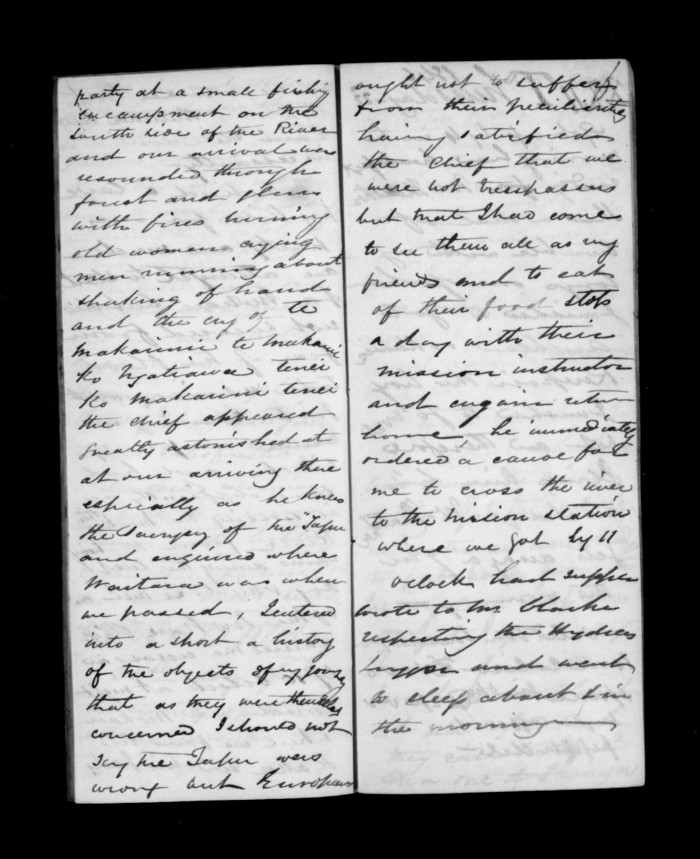 party at a small fishing
encampment on the
south side of the River
and our arrival was
resounded through
forest and glens
with fires burning
old women crying
men running about
shaking of hand
and the cry of te
makarini te makarini
ko Ngatiawa tenei
ko makarini tenei
the chief appeared
greatly astonished at
at our arriving there
especially as he knew
the of the "Tapu
and enquired where
Waitara was when
we passed, I entered
into a short a history
of the objects of my journey
that as they were themselves
concerned I should not
say the Tapu was
wrong but European
ought not to suffer
from their peculiarity
having satisfied
the chief that we
were not trespassers
but that I had come
to see them all as my
friends and to eat
of their food stop
a day with their
mission instructor
and again return
home, he immediately
ordered a canoe for
me to cross the river
to the mission station
where we got by 11
oclock had supper
wrote to Mr
respecting the
and went
to sleep about 1 in
the morning